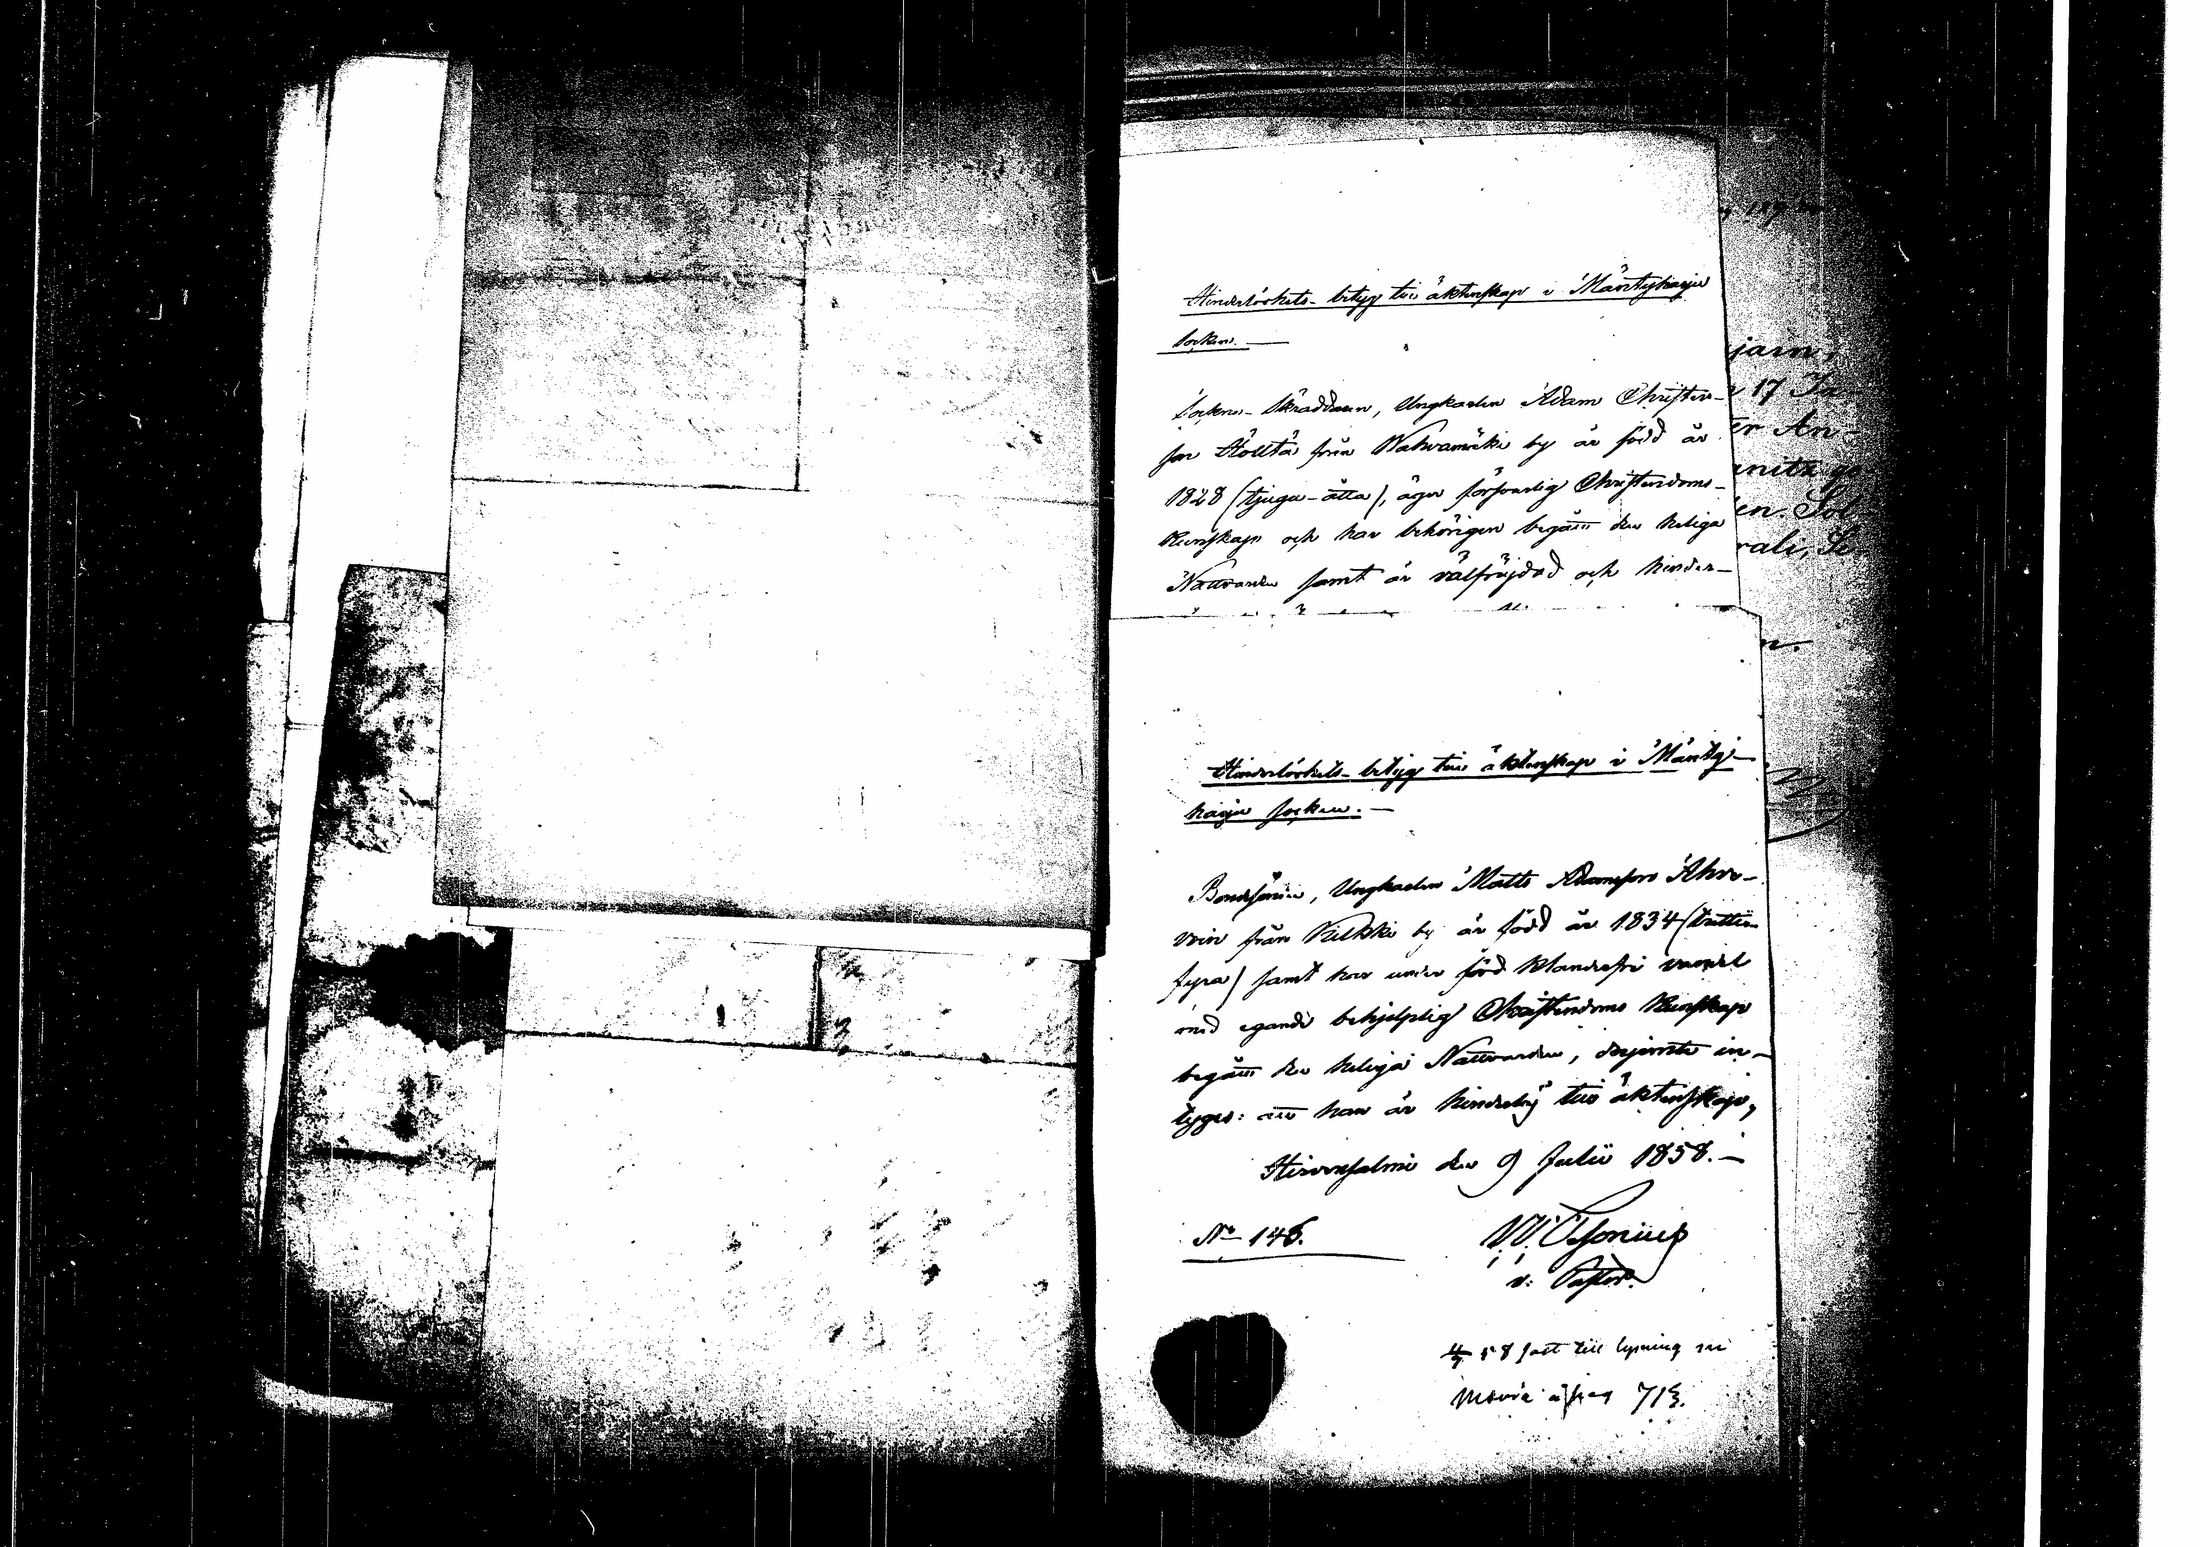 Hinderlöshets-betyg till äktenskap i Mäntyharju
socken.
Sockne-Skräddaren, Ungkarlen Adam Christers-
son Hölttä från Wahvamäki by är född år
1828 (tjugu-åtta), äger försvarlig Christendoms-
Kunskap och har behörigen begått den heliga
Nattvarden samt är välfrejdad och hinder-
jam,
17 Ja-
er An-
nitz
en. Sol-
rali, Se-
n.
Hinderlöshets-betyg till äktenskap i Mänty-
harju socken.
Bondsonen, Ungkarlen Matts Adamsson Ahvo-
nin från Kilkki by är född år 1834 (trettio
fyra) samt har under förd klanderfri vandel
med egande behjelplig Christendoms Kunskap
begått den heliga Nattvarden, derjemte in-
tyges: att han är hinderlös till äktenskap,
Hirvensalmi den 9 Julii 1858.
No 146.
v: Pastor.
58 till lysning
713.